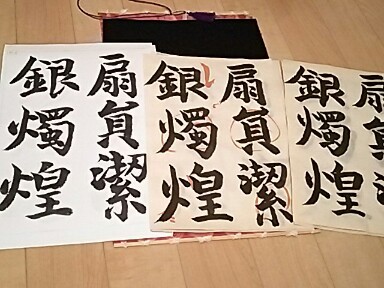 扇員潔
銀燭煌
扇員潔
銀燭煌
扇員潔
銀燭煌